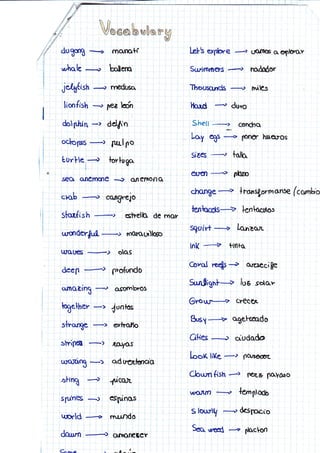 Vocabulary
dugong → manatí
whale → ballena
jellyfish → medusa
lionfish → pez león
dolphin → delfín
octopus → pulpo
turtle → tortuga
sea anemone → anemona
crab → cangrejo
starfish → estrella de mar
wonderful → maravilloso
waves → olas
deep → profundo
amazing → asombros
together → juntos
strange → extraño
stripes → rayas
warning → advertencia
sting → picar
spines → espinas
world → mundo
dawn → amanecer
Let's explore → vamos a explorar
Swimmers → nadador
Thousands → miles
Hard → duro
Shell → concha
Lay eggs → poner huevos
sizes → talla
even → plano
change → transformarse (cambio
tentacles → tentáculos
squirt → lanzar
ink → tinta
Coral reefs → arrecife
Sunlight → luz solar
Grow → crecer
Busy → agetreado
Cities → ciudade
Look like → parecer
Clown fish → pez payaso
warm → templado
Slowly → despacio
Sea weed → placton